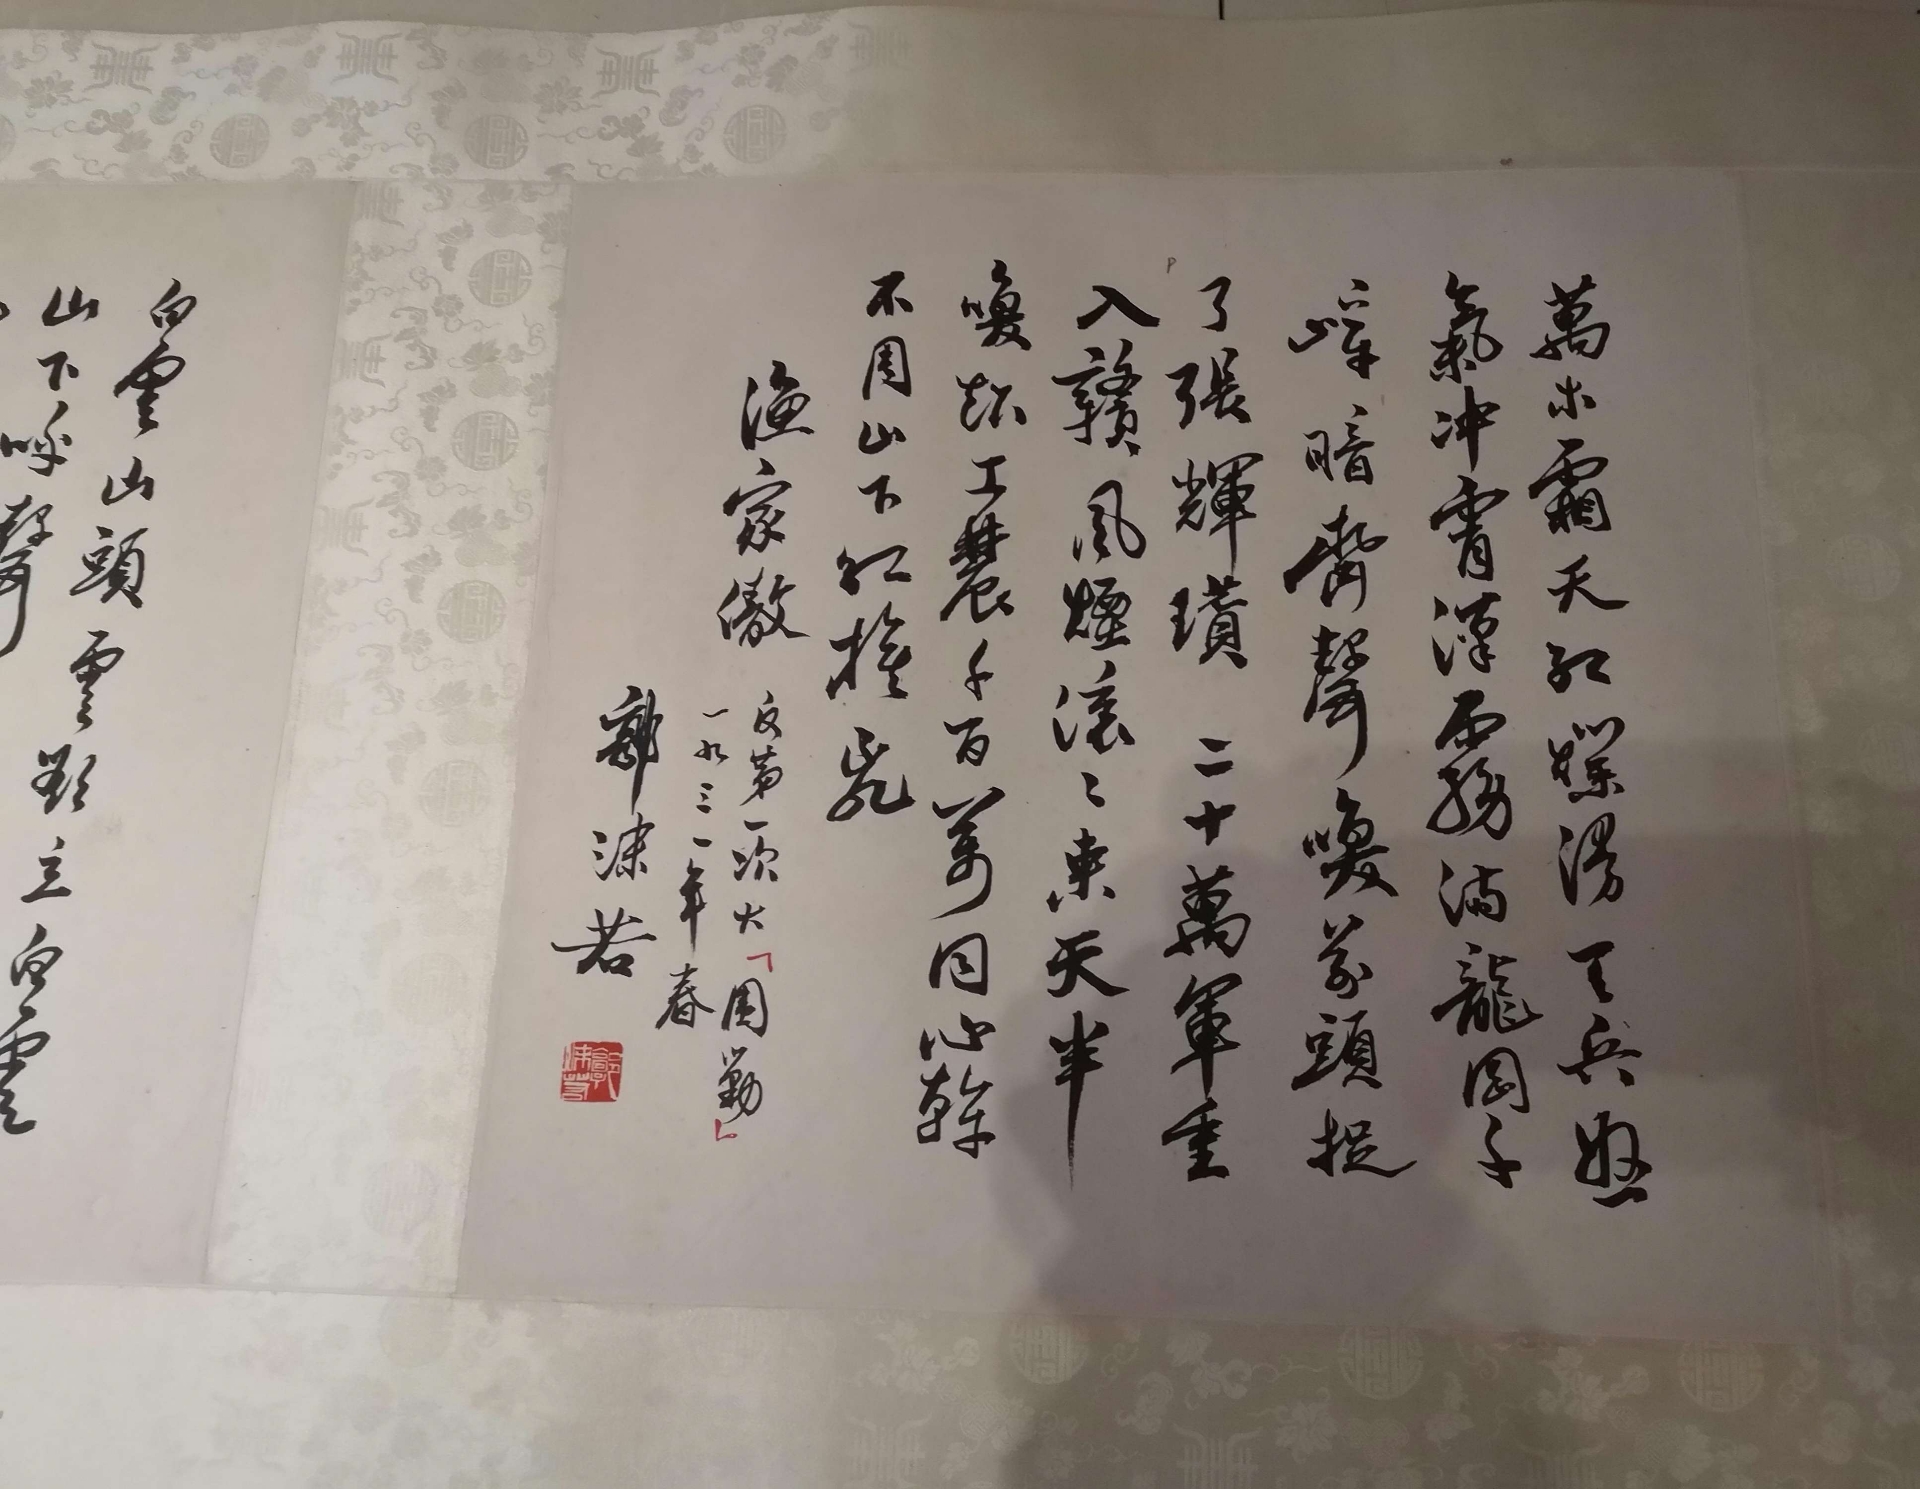 萬木霜天紅爛漫天兵怒
氣冲霄漢霧滿龍岡千
嶂暗齊聲喚前頭捉
了張輝瓚 二十萬軍重
入贛風煙滾〻來天半
喚起工農千百萬同心幹
不周山下紅旗亂
漁家傲
反第一次大「圍勦」
一九三一年春
郭沫若
白雲山頭雲欲立白雲
山下呼聲